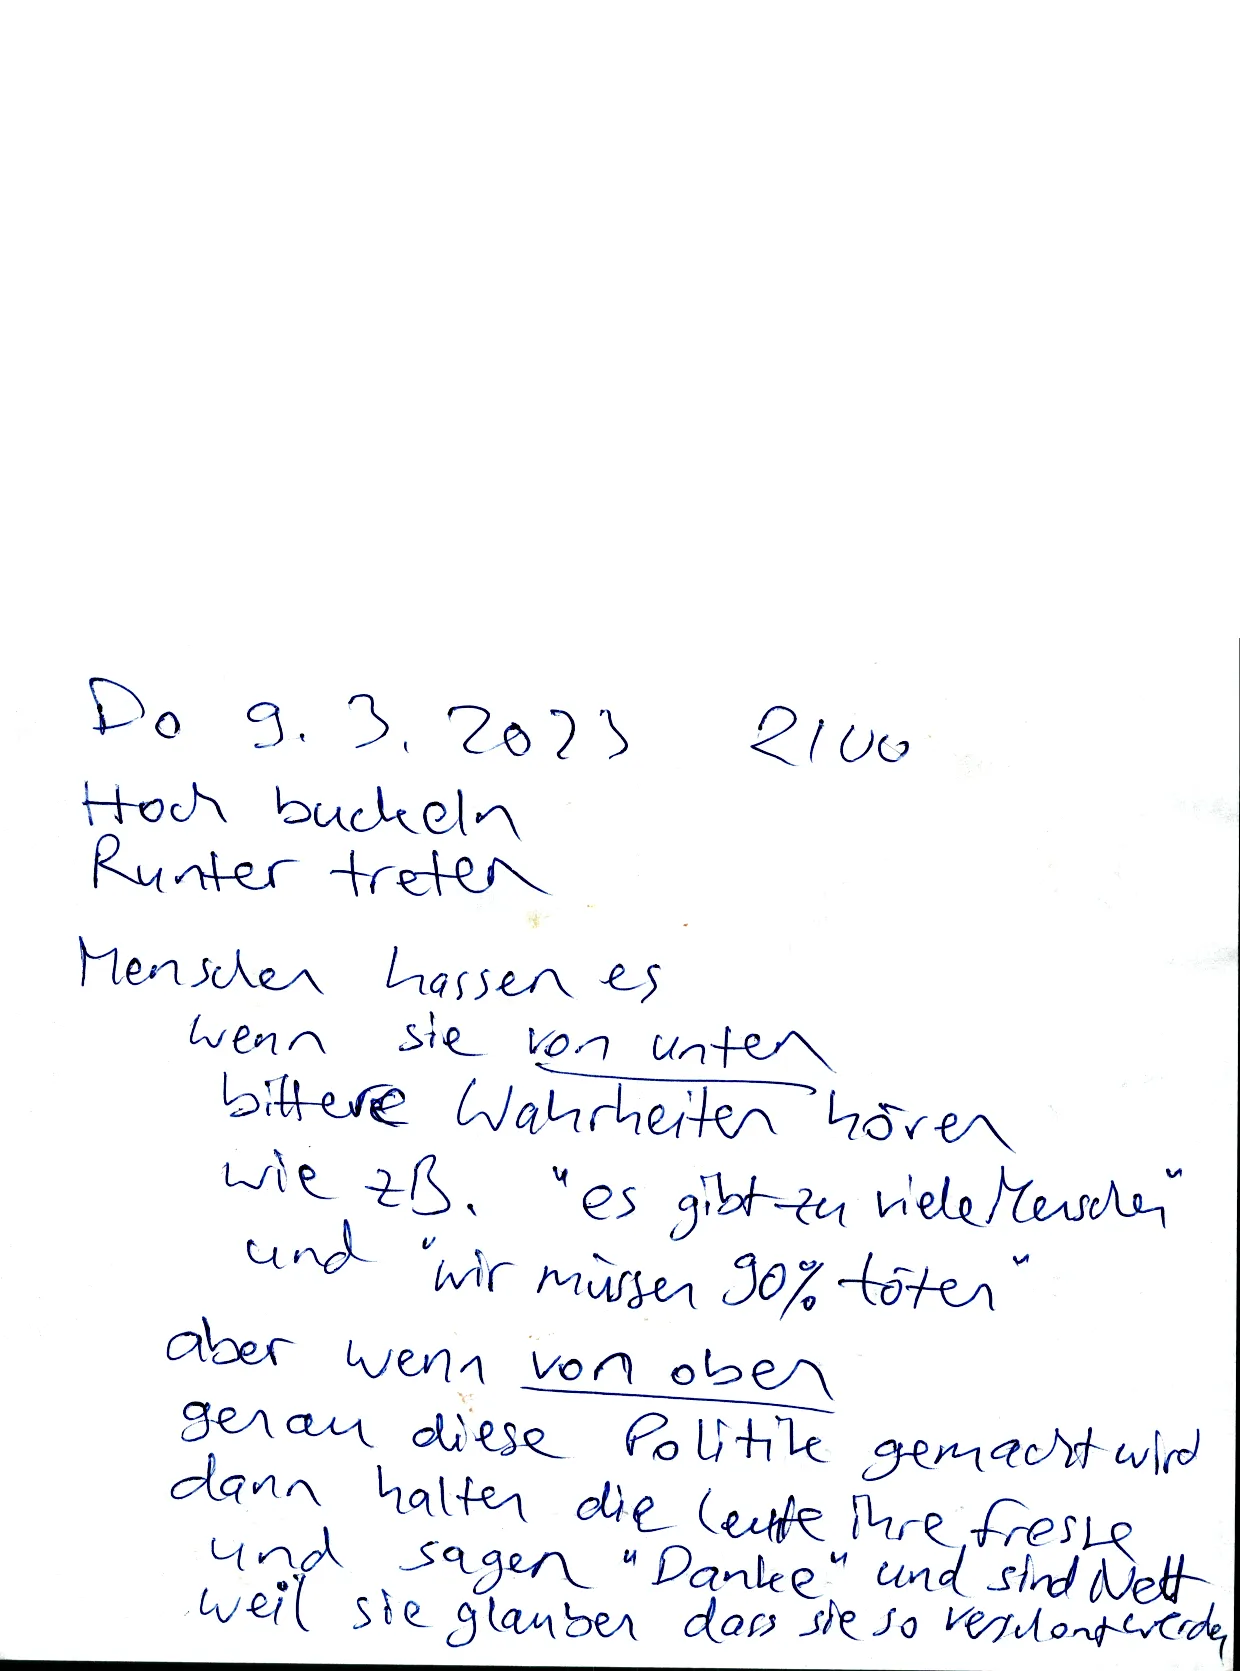 Do 9.3.2023 2100
Hoch buckeln
Runter treten
Menschen hassen es
wenn sie von unten
bittere Wahrheiten hören
wie zB. "es gibt zu viele Menschen"
und "wir müssen 90% töten"
aber wenn von oben
genau diese Politik gemacht wird
dann halten die Leute ihre fresse
und sagen "Danke" und sind Nett
weil sie glauben dass sie so verschont werden